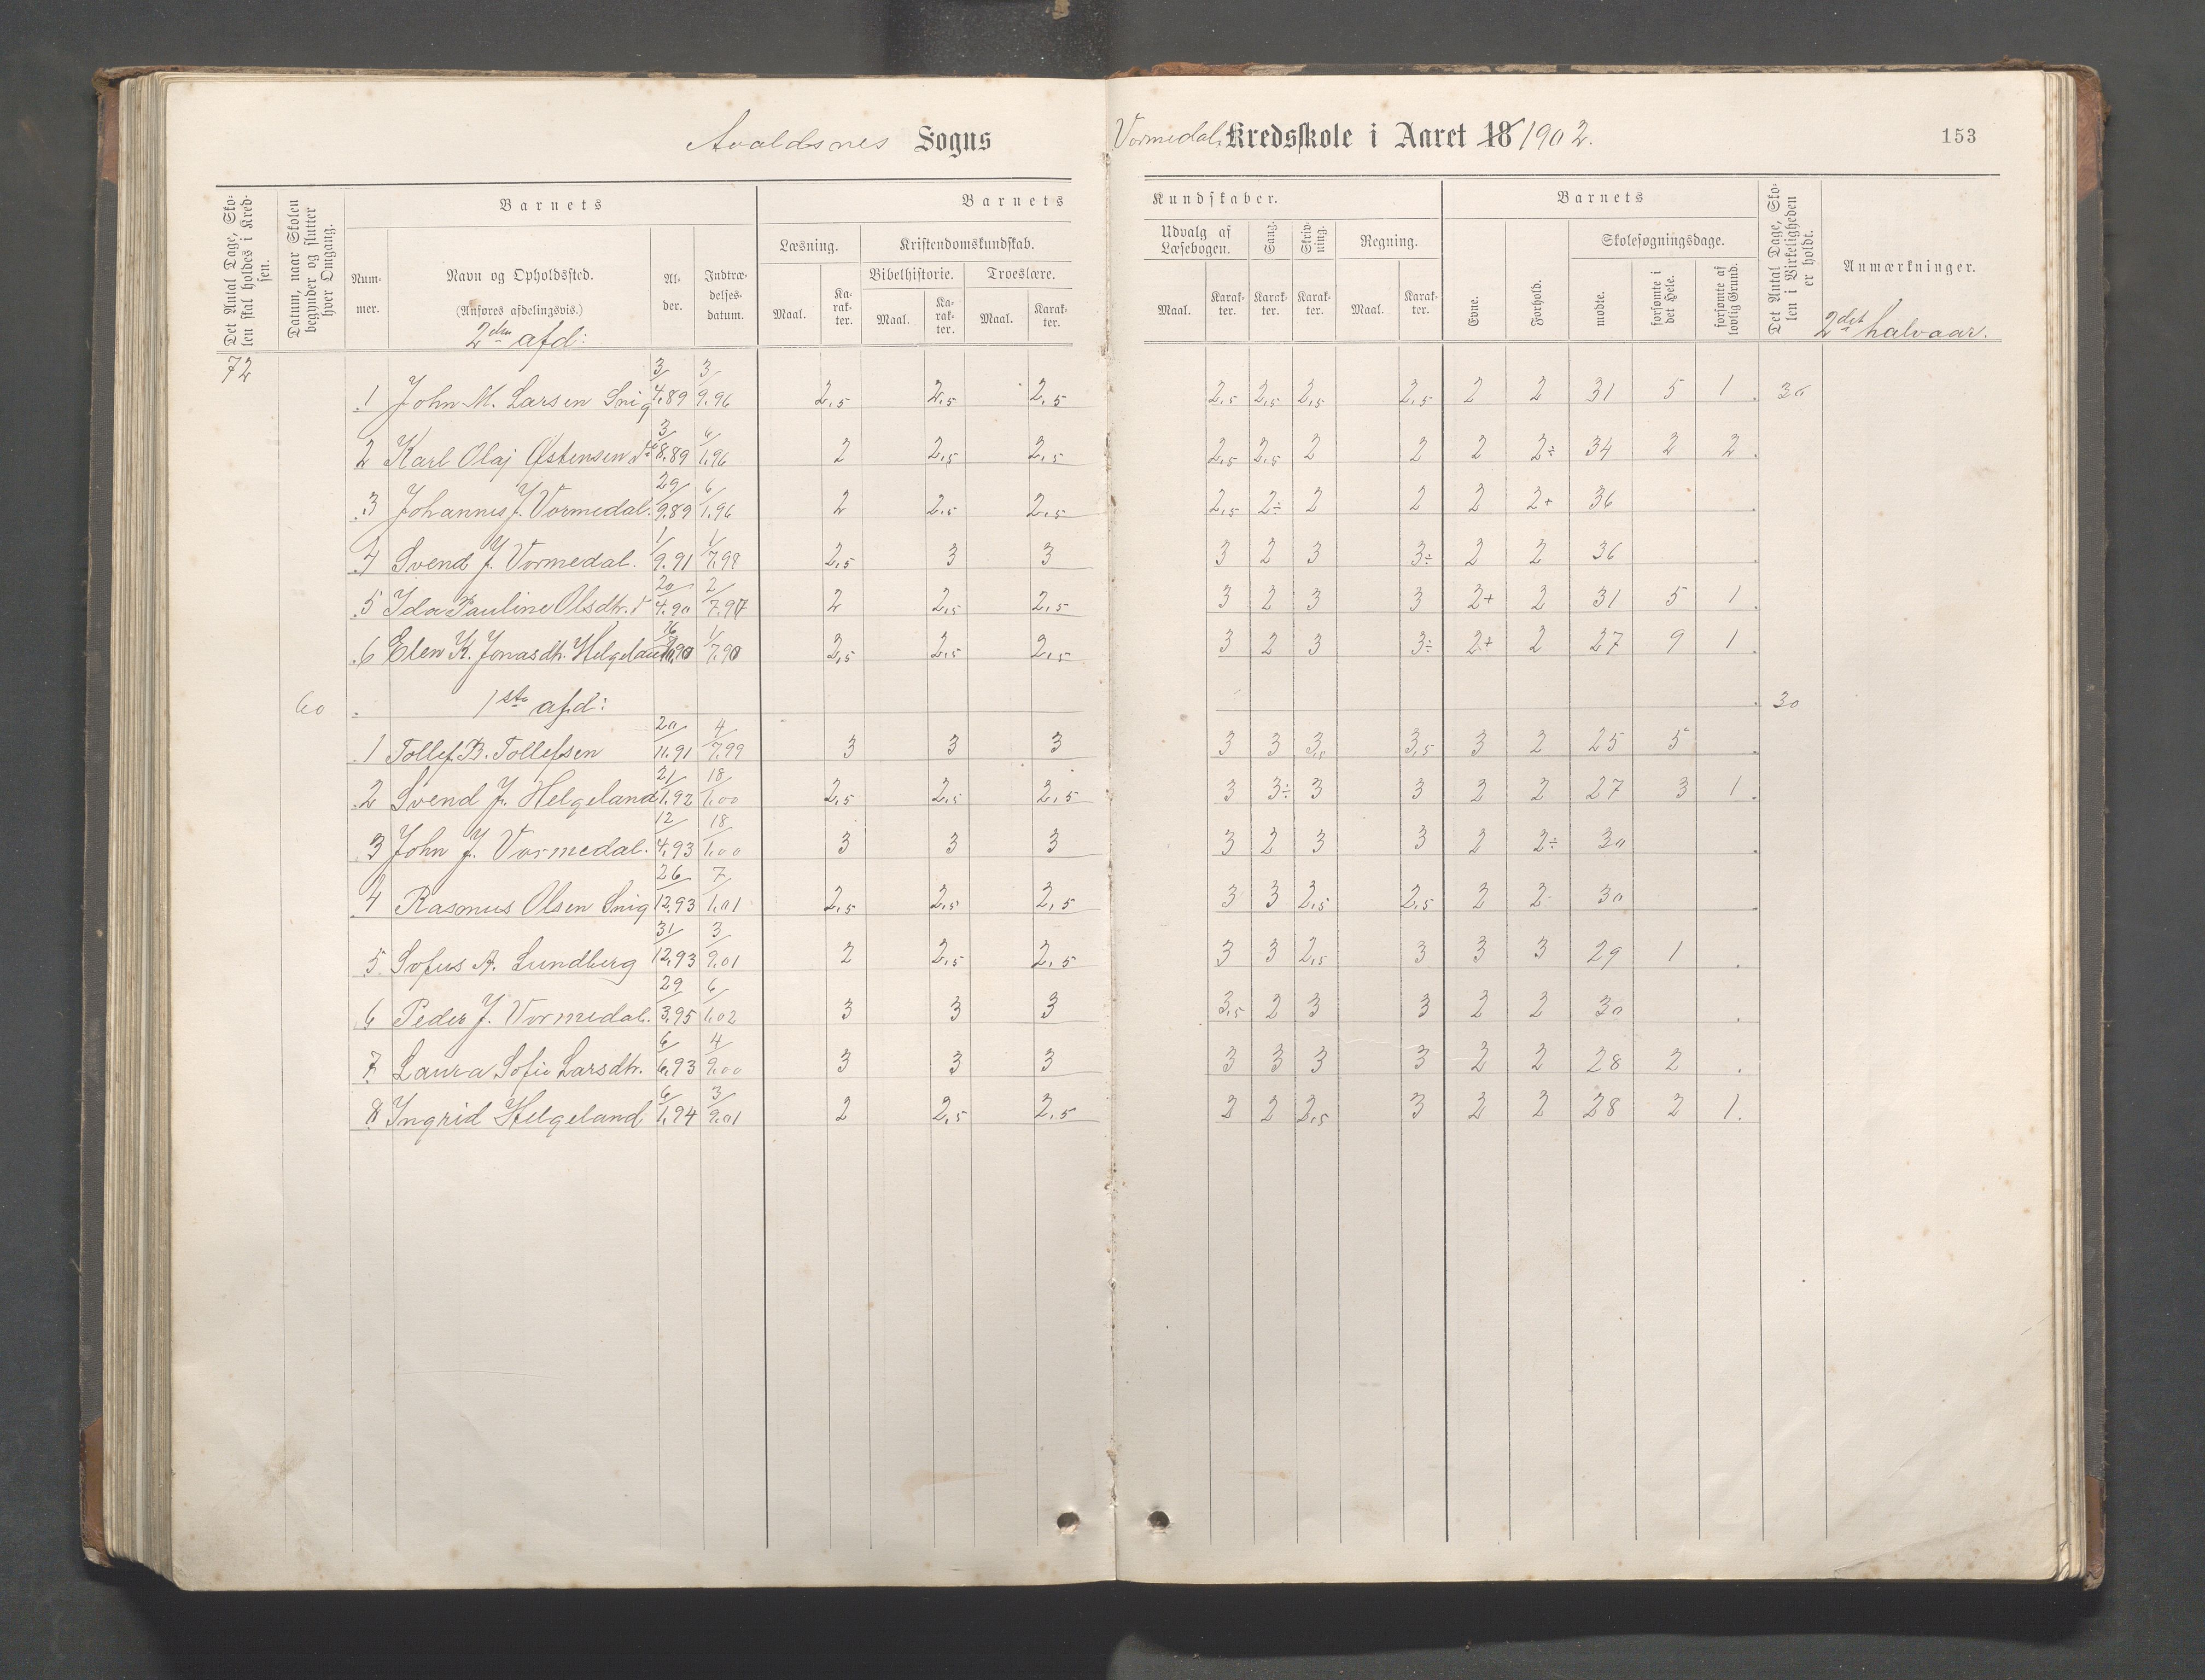 Avaldsnes Sogns Vormedal Kredsskole i Aaret 18 1902. 153
Det Antal Dage, Skolen skal holdes i Kredsen.
Datum, naar Skolen begynder og slutter hver Omgang.
Barnets
Nummer.
Navn og Opholdssted.
(Anføres afdelingsvis.)
2den afd:
Alder.
Indtrædelsesdatum.
Barnets Kundskaber.
Læsning. Kristendomskundskab. Udvalg af Læsebogen. Sang. Skrivning. Regning.
Bibelhistorie. Troeslære.
Maal. Karakter. Maal. Karakter. Maal. Karakter. Maal. Karakter. Karakter. Karakter. Maal. Karakter.
Barnets
Evne. Forhold. Skolesøgningsdage.
mødte. forsømte i det Hele. forsømte af lovlig Grund.
Det Antal Dage, Skolen i Virkeligheden er holdt.
Anmærkninger.
2det halvaar.
72
1 John M. Larsen Snig 3/4.89 3/9.96 2,5 2,5 2,5 2,5 2,5 2,5 2,5 2 2 31 5 1 36
2 Karl Olaj Østensen do 3/8.89 6/1.96 2 2,5 2,5 2,5 2,5 2 2 2 2÷ 34 2 2
3 Johannes J. Vormedal. 29/9.89 6/1.96 2 2,5 2,5 2,5 2÷ 2 2 2 2+ 36
4 Svend J. Vormedal. 1/9.91 1/7.98 2,5 3 3 3 2 3 3÷ 2 2 36
5 Ida Pauline Olsdtr. 20/4.90 2/7.97 2 2,5 2,5 3 2 3 3 2+ 2 31 5 1
6 Elen K. Jonasdtr. Helgeland 1/7.90 2,5 2,5 2,5 3 2 3 3÷ 2+ 2 27 9 1
60 1ste afd: 30
1 Tollef B. Tollefsen 20/11.91 4/7.99 3 3 3 3 3 3,5 3,5 3 2 25 5
2 Svend J. Helgeland 21/1.92 18/1.00 2,5 2,5 2,5 3 3÷ 3 3 2 2 27 3 1
3 John J. Vormedal. 12/4.93 18/1.00 3 3 3 3 2 3 3 2 2÷ 30
4 Rasmus Olsen Snig 26/12.93 7/1.01 2,5 2,5 2,5 3 3 2,5 2,5 2 2 30
5 Sofus A. Lundberg 31/12.93 3/9.01 2 2,5 2,5 3 3 2,5 3 3 3 29 1
6 Peder J. Vormedal. 29/3.95 6/1.02 3 3 3 3,5 2 3 3 2 2 30
7 Laura Sofie Larsdtr. 6/6.93 4/9.00 3 3 3 3 3 3 3 2 2 28 2
8 Ingrid Helgeland 6/1.94 3/9.01 2 2,5 2,5 2 2 2,5 3 2 2 28 2 1